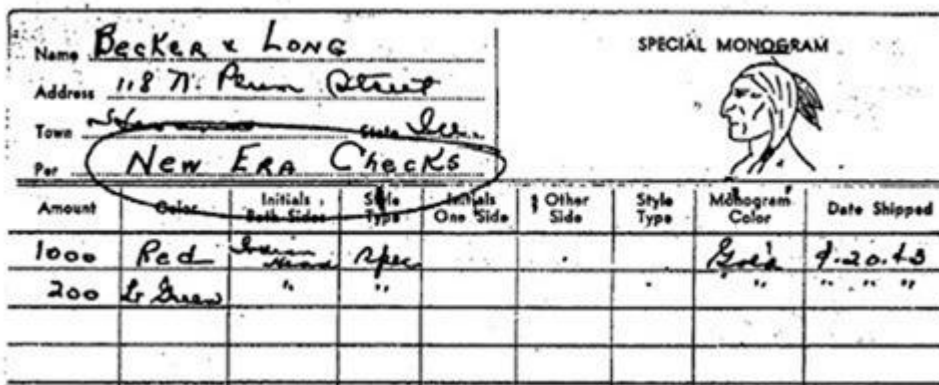 Name Becker & Long
SPECIAL MONOGRAM
Address 118 N. Penn Street
Town State
Per New Era Checks
Amount Color Initials Both Sides Style Type Initials One Side Other Side Style Type Monogram Color Date Shipped
1000 Red Indian Head Spec Gold
200 Lt Green " " " " " " "